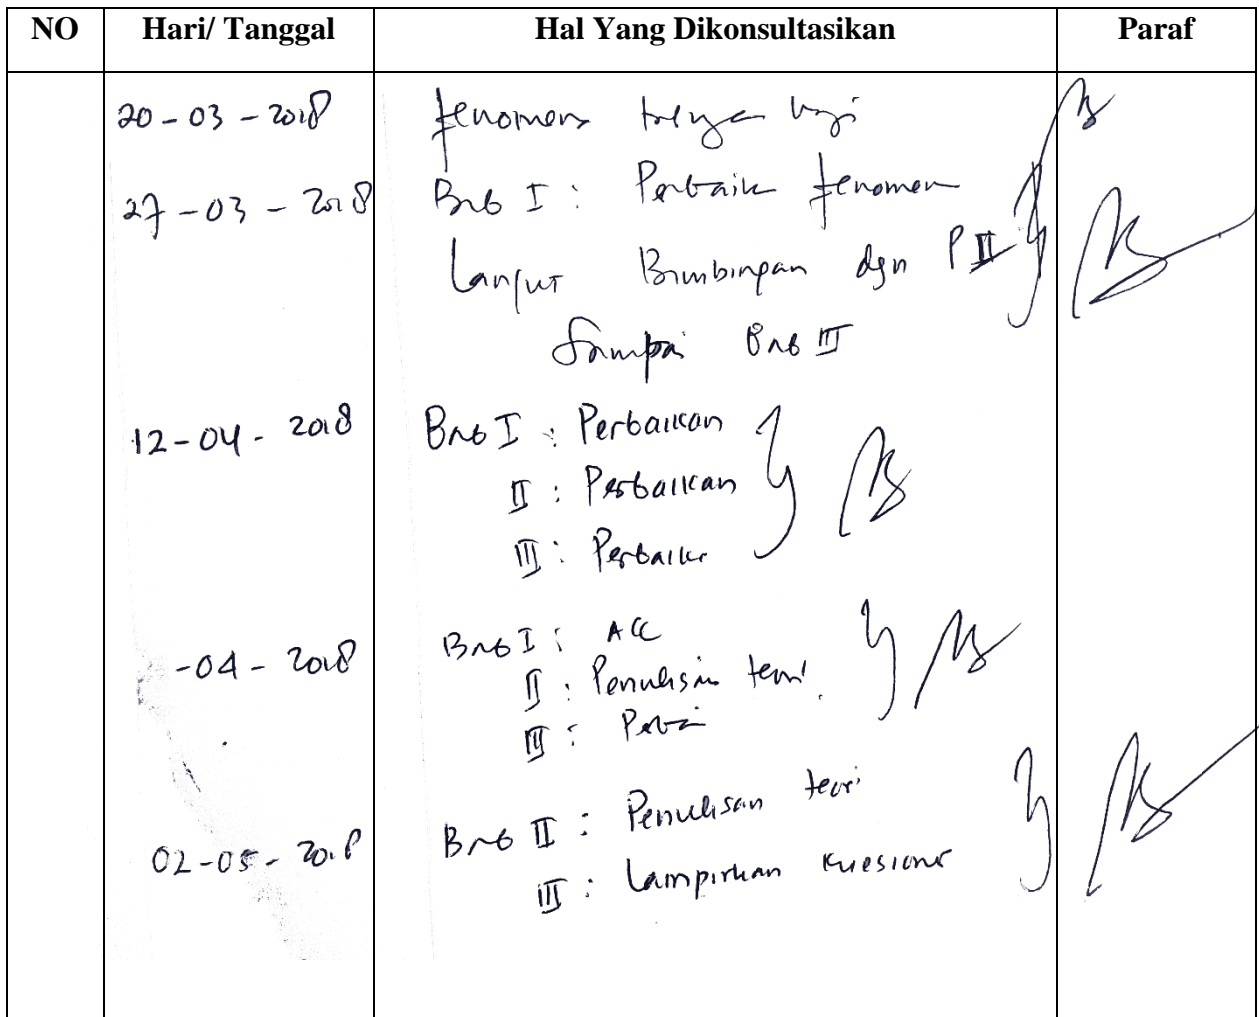 NO Hari/ Tanggal Hal Yang Dikonsultasikan Paraf
20-03-2018 fenomena
27-03-2018 Bab I : Perbaik fenomen
Lanjut Bimbingan dgn P II
Sampai Bab III
12-04-2018 Bab I : Perbaikan
II : Perbaikan
III : Perbaikan
-04-2018 Bab I : ACC
II : Penulisan teori
III :
02-05-2018 Bab II : Penulisan teori
III : Lampirkan kuesioner